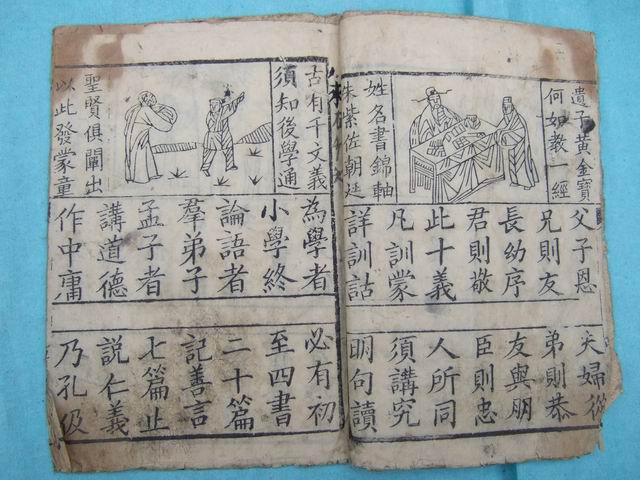 遺子黃金寶
何如教一經
姓名書錦軸
朱紫佐朝廷
父子恩
夫婦從
兄則友
弟則恭
長幼序
友與朋
君則敬
臣則忠
此十義
人所同
凡訓蒙
須講究
詳訓詁
明句讀
古有千文義
須知後學通
聖賢俱闡出
以此發蒙童
為學者
必有初
小學終
至四書
論語者
二十篇
羣弟子
記善言
孟子者
七篇止
講道德
說仁義
作中庸
乃孔伋